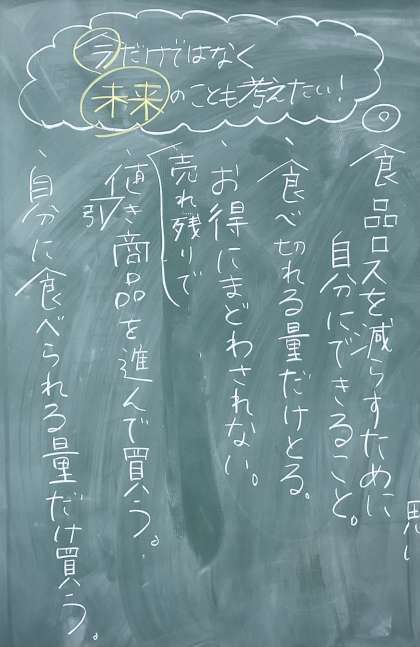 今だけではなく
未来のことも考えたい!
◎食品ロスを減らすために
自分にできること。
、食べ切れる量だけとる。
、お得にまどわされない。
(売れ残りで
、値引き商品を進んで買う。
、自分に食べられる量だけ買う。
思い